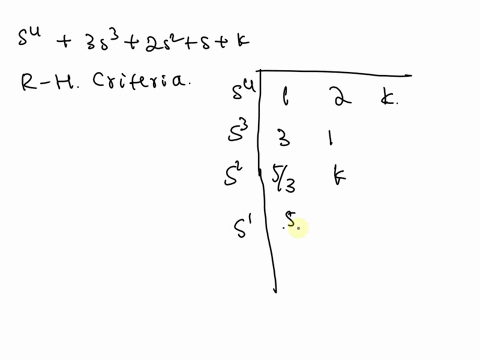 s⁴ + 3s³ + 2s² + s + k
R-H. Criteria.
s⁴ 1 2 k.
s³ 3 1
s² 5/3 k
s¹ .5.